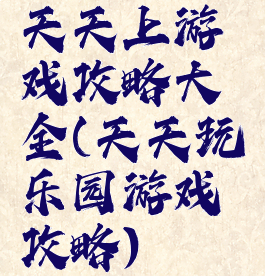 天天上游
戏攻略大
全(天天玩
乐园游戏
攻略)